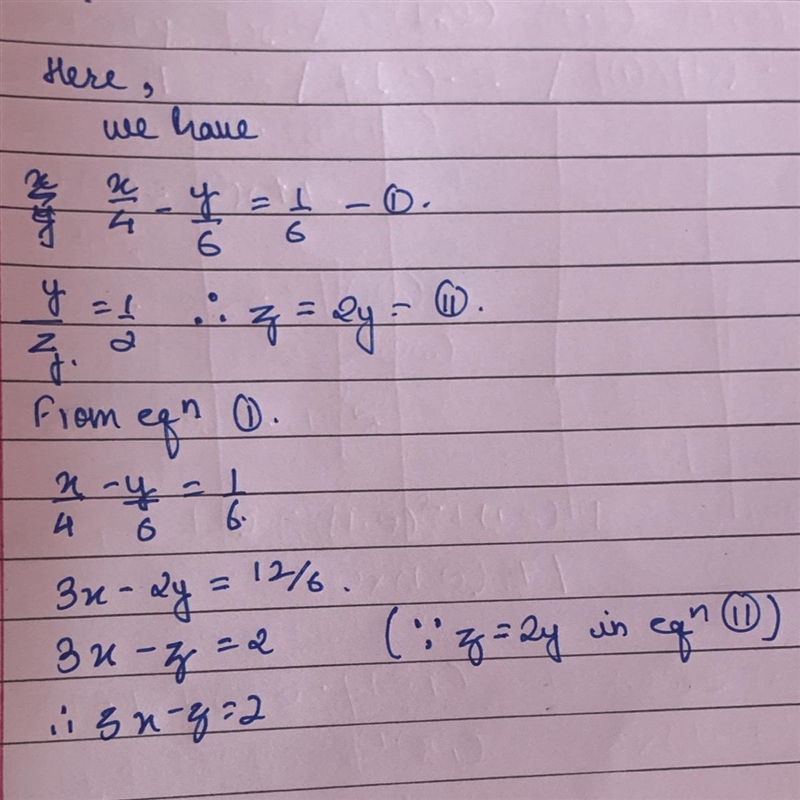 Here,
we have
x/4 - y/6 = 1/6 - ①.
y/z = 1/2 ∴ z = 2y - ⑪.
From eqⁿ ①.
x/4 - y/6 = 1/6.
3x - 2y = 12/6.
3x - z = 2 (∵ z = 2y in eqⁿ ⑪)
∴ 3x - z = 2